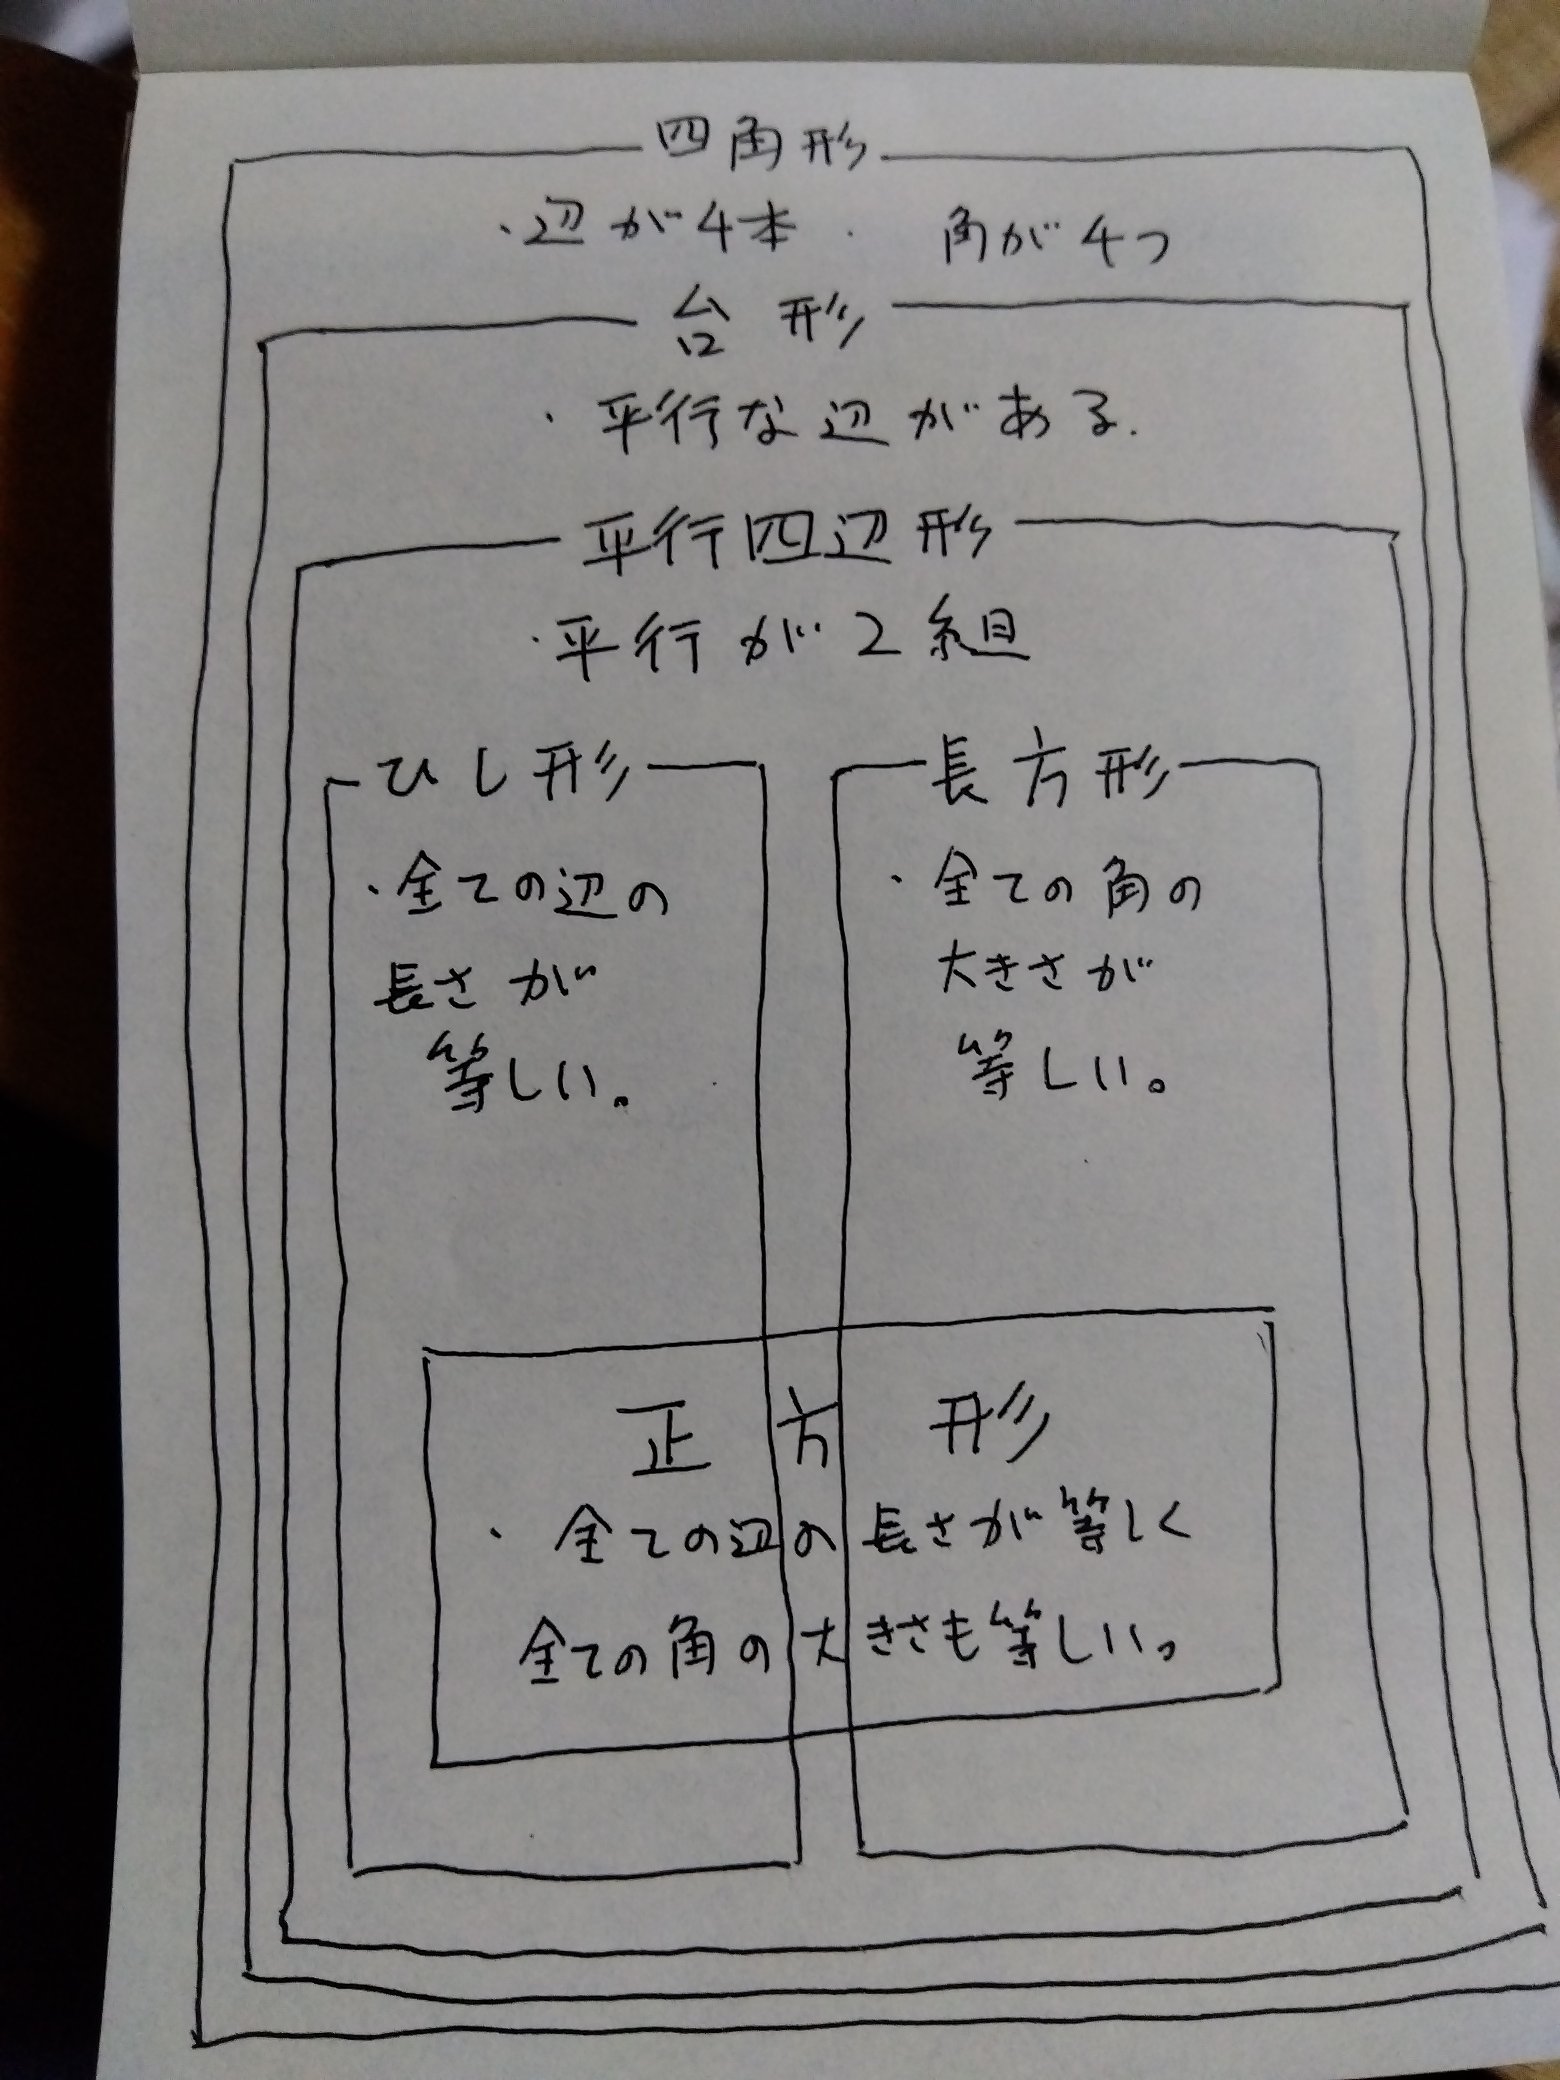 四角形
・辺が4本・ 角が4つ
台形
・平行な辺がある.
平行四辺形
・平行が2組
ひし形
・全ての辺の
長さが
等しい。
長方形
・全ての角の
大きさが
等しい。
正方形
・全ての辺の長さが等しく
全ての角の大きさも等しい。